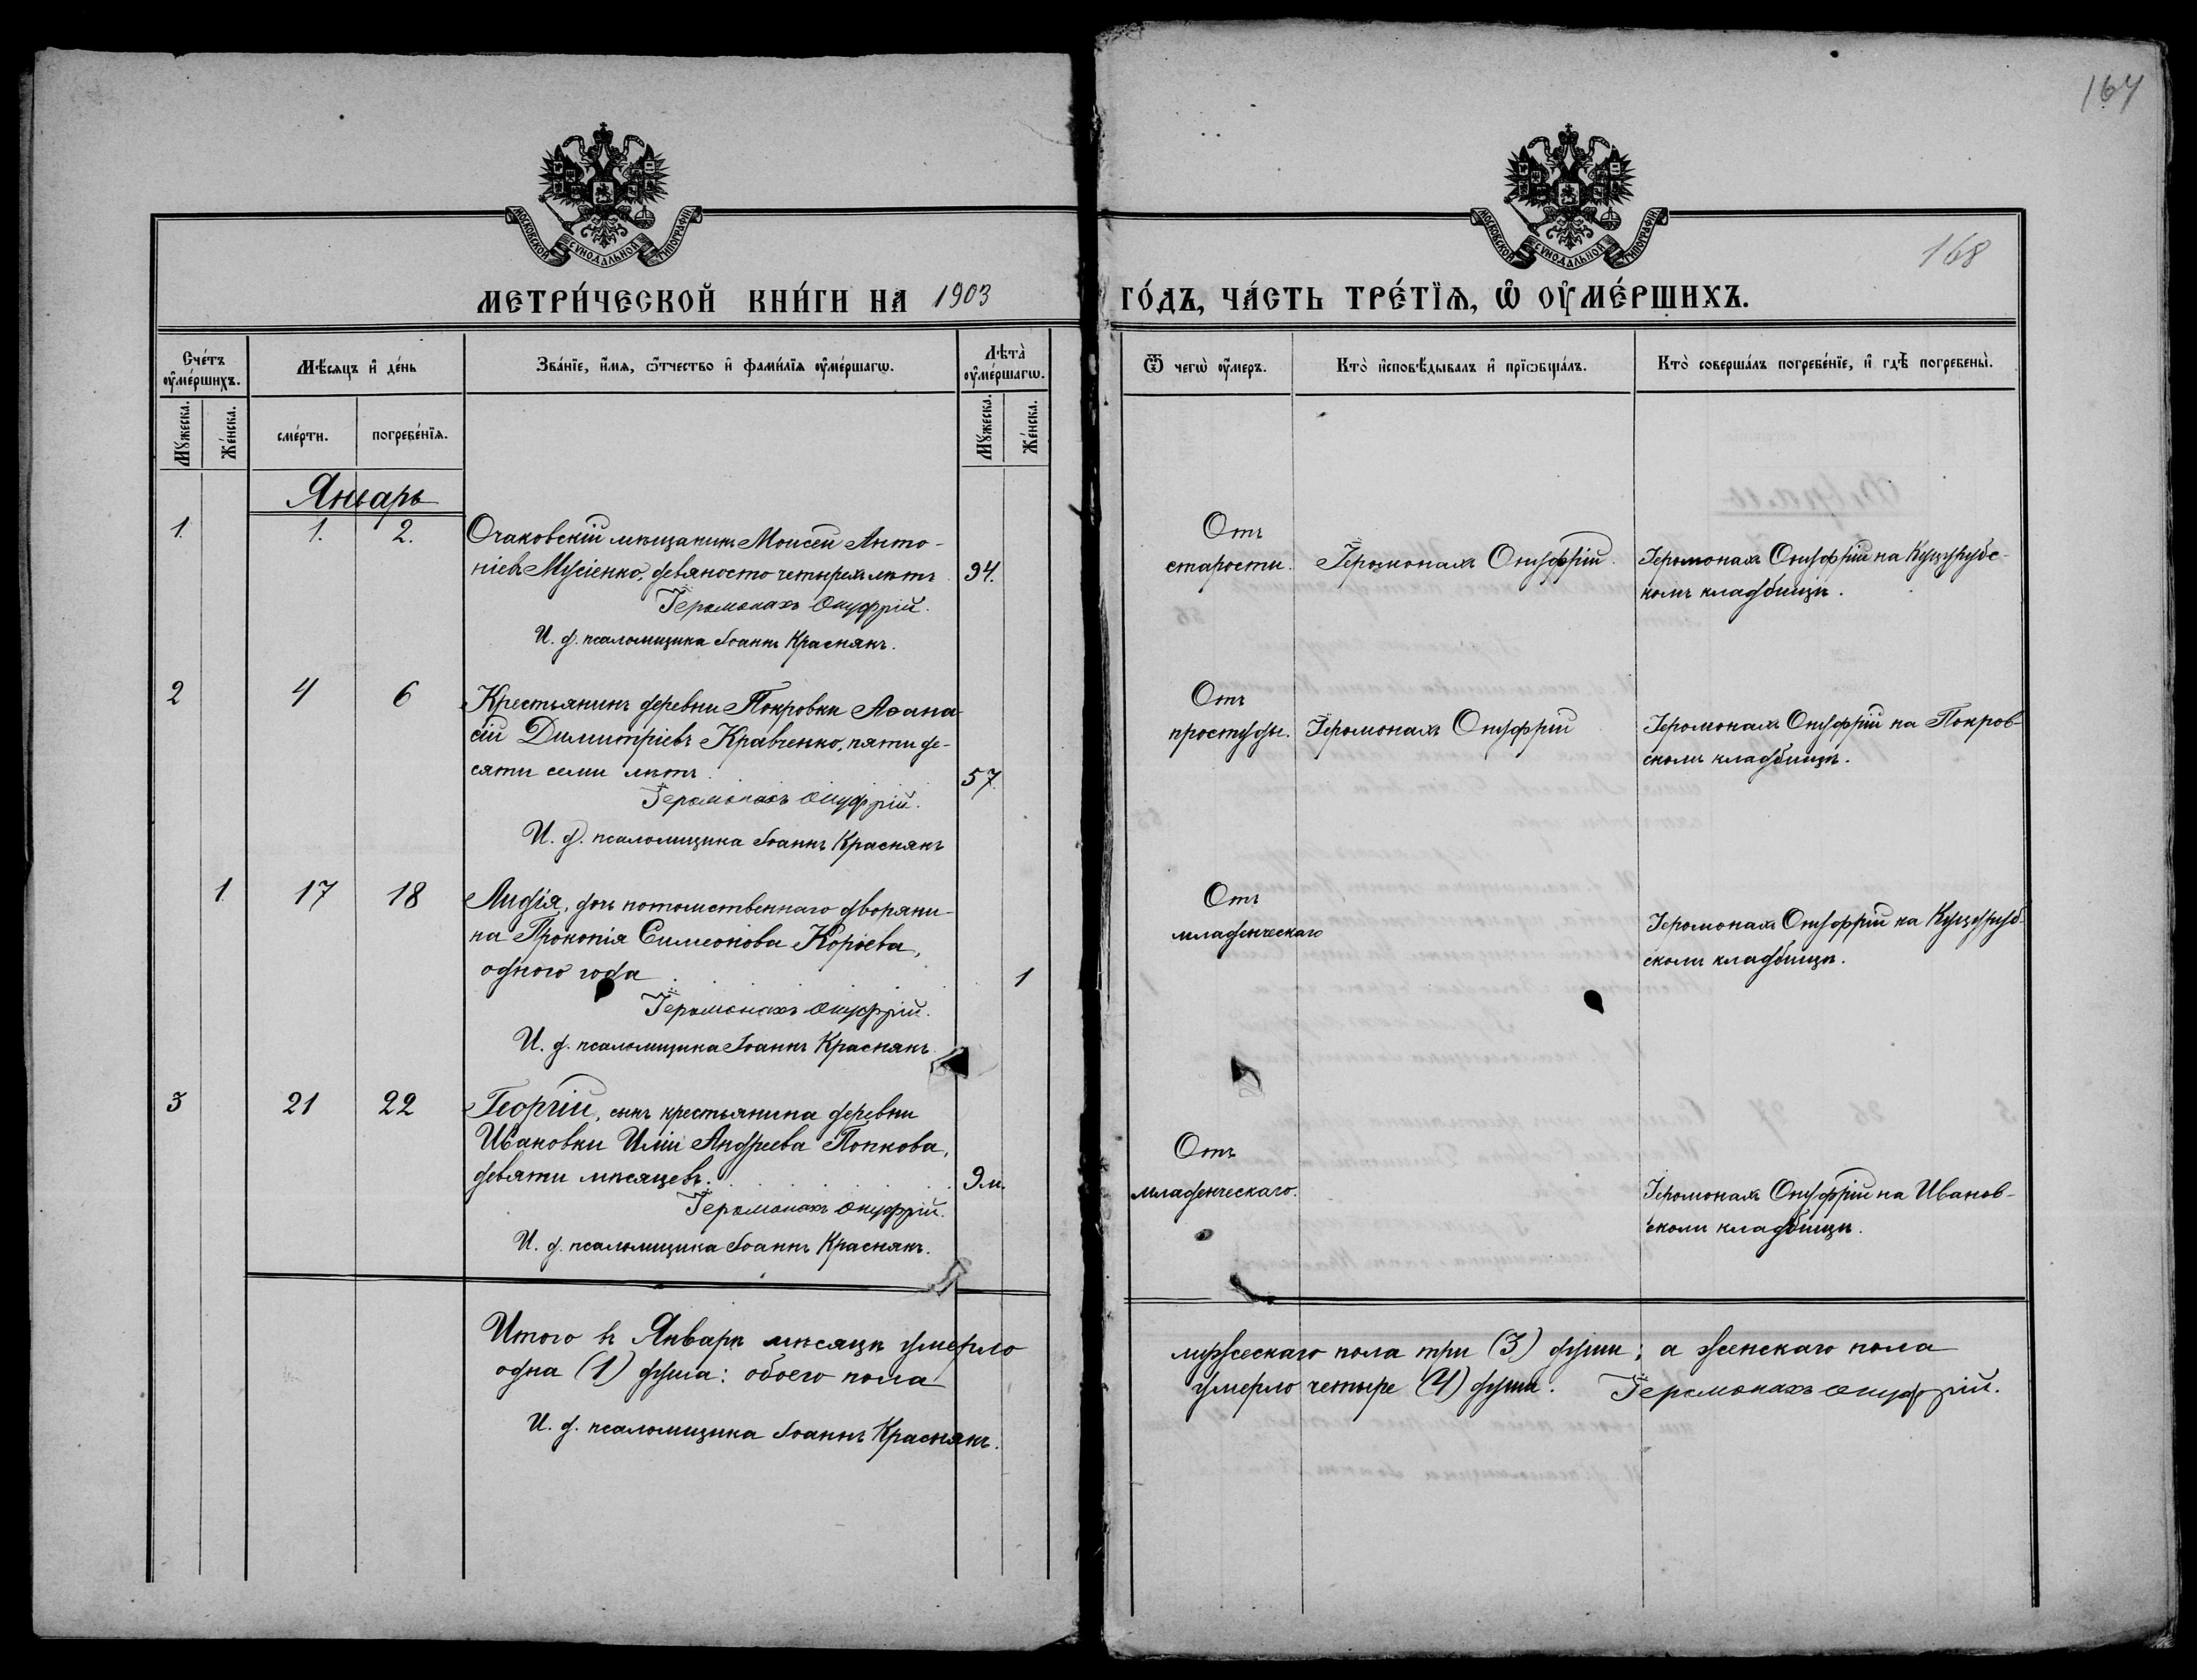 164
МОСКОВСКОЙ СУНОДАЛЬНОЙ ТИПОГРАФІИ
МОСКОВСКОЙ СУНОДАЛЬНОЙ ТИПОГРАФІИ
168
МЕТРИ́ЧЕСКОЙ КНИ́ГИ НА 1903
ГО́ДЪ, ЧА́СТЬ ТРЕ́ТЇѦ, Ѡ҆ ОУ҆МЕ́РШИХЪ.
Счетъ оу҆ме́ршихъ.
Мѣ́сяцъ и҆ де́нь
Зва́нїе, и҆́мя, ѻ҆́тчество и҆ фами́лїя оу҆ме́ршагѡ.
Лѣта̀ оу҆ме́ршагѡ.
Ѿ чегѡ̀ оу҆́меръ.
Кто̀ и҆сповѣ́дывалъ и҆ прїѡбща́лъ.
Кто̀ соверша́лъ погребе́нїе, и҆ гдѣ̀ погребены̀.
Мꙋ́жеска.
Же́нска.
сме́рти.
погребе́нїя.
Мꙋ́жеска.
Же́нска.
Январь
1. 1. 2. Очаковскій мѣщанинъ Моисей Анто-
ніевъ Мусіенко, девяносто четырехъ лѣтъ 94.
Іеромонахъ Онуфрій.
И. д. псаломщика Іоаннъ Краснякъ.
Отъ
старости. Іеромонахъ Онуфрій. Іеромонахъ Онуфрій на Куцурубс-
комъ кладбищѣ.
2 4 6 Крестьянинъ деревни Покровки Аѳана-
сій Димитріевъ Кравченко, пятиде-
сяти семи лѣтъ. 57.
Іеромонахъ Онуфрій.
И. д. псаломщика Іоаннъ Краснякъ
Отъ
простуды. Іеромонахъ Онуфрій Іеромонахъ Онуфрій на Покров-
скомъ кладбищѣ.
1 17 18 Лидія, дочь потомственнаго дворяни-
на Прокопія Симеонова
одного года 1
Іеромонахъ Онуфрій.
И. д. псаломщика Іоаннъ Краснякъ.
Отъ
младенческаго Іеромонахъ Онуфрій на Куцуруб-
скомъ кладбищѣ.
3 21 22 Георгій, сынъ крестьянина деревни
Ивановки Иліи Андреева Попкова,
девяти мѣсяцевъ. 9 м.
Іеромонахъ Онуфрій.
И. д. псаломщика Іоаннъ Краснякъ.
Отъ
младенческаго. Іеромонахъ Онуфрій на Иванов-
скомъ кладбищѣ.
Итого въ Январѣ мѣсяцѣ умерло мужескаго пола три (3) души; а женскаго пола
одна (1) душа: обоего пола умерло четыре (4) души. Іеромонахъ Онуфрій.
И. д. псаломщика Іоаннъ Краснякъ.